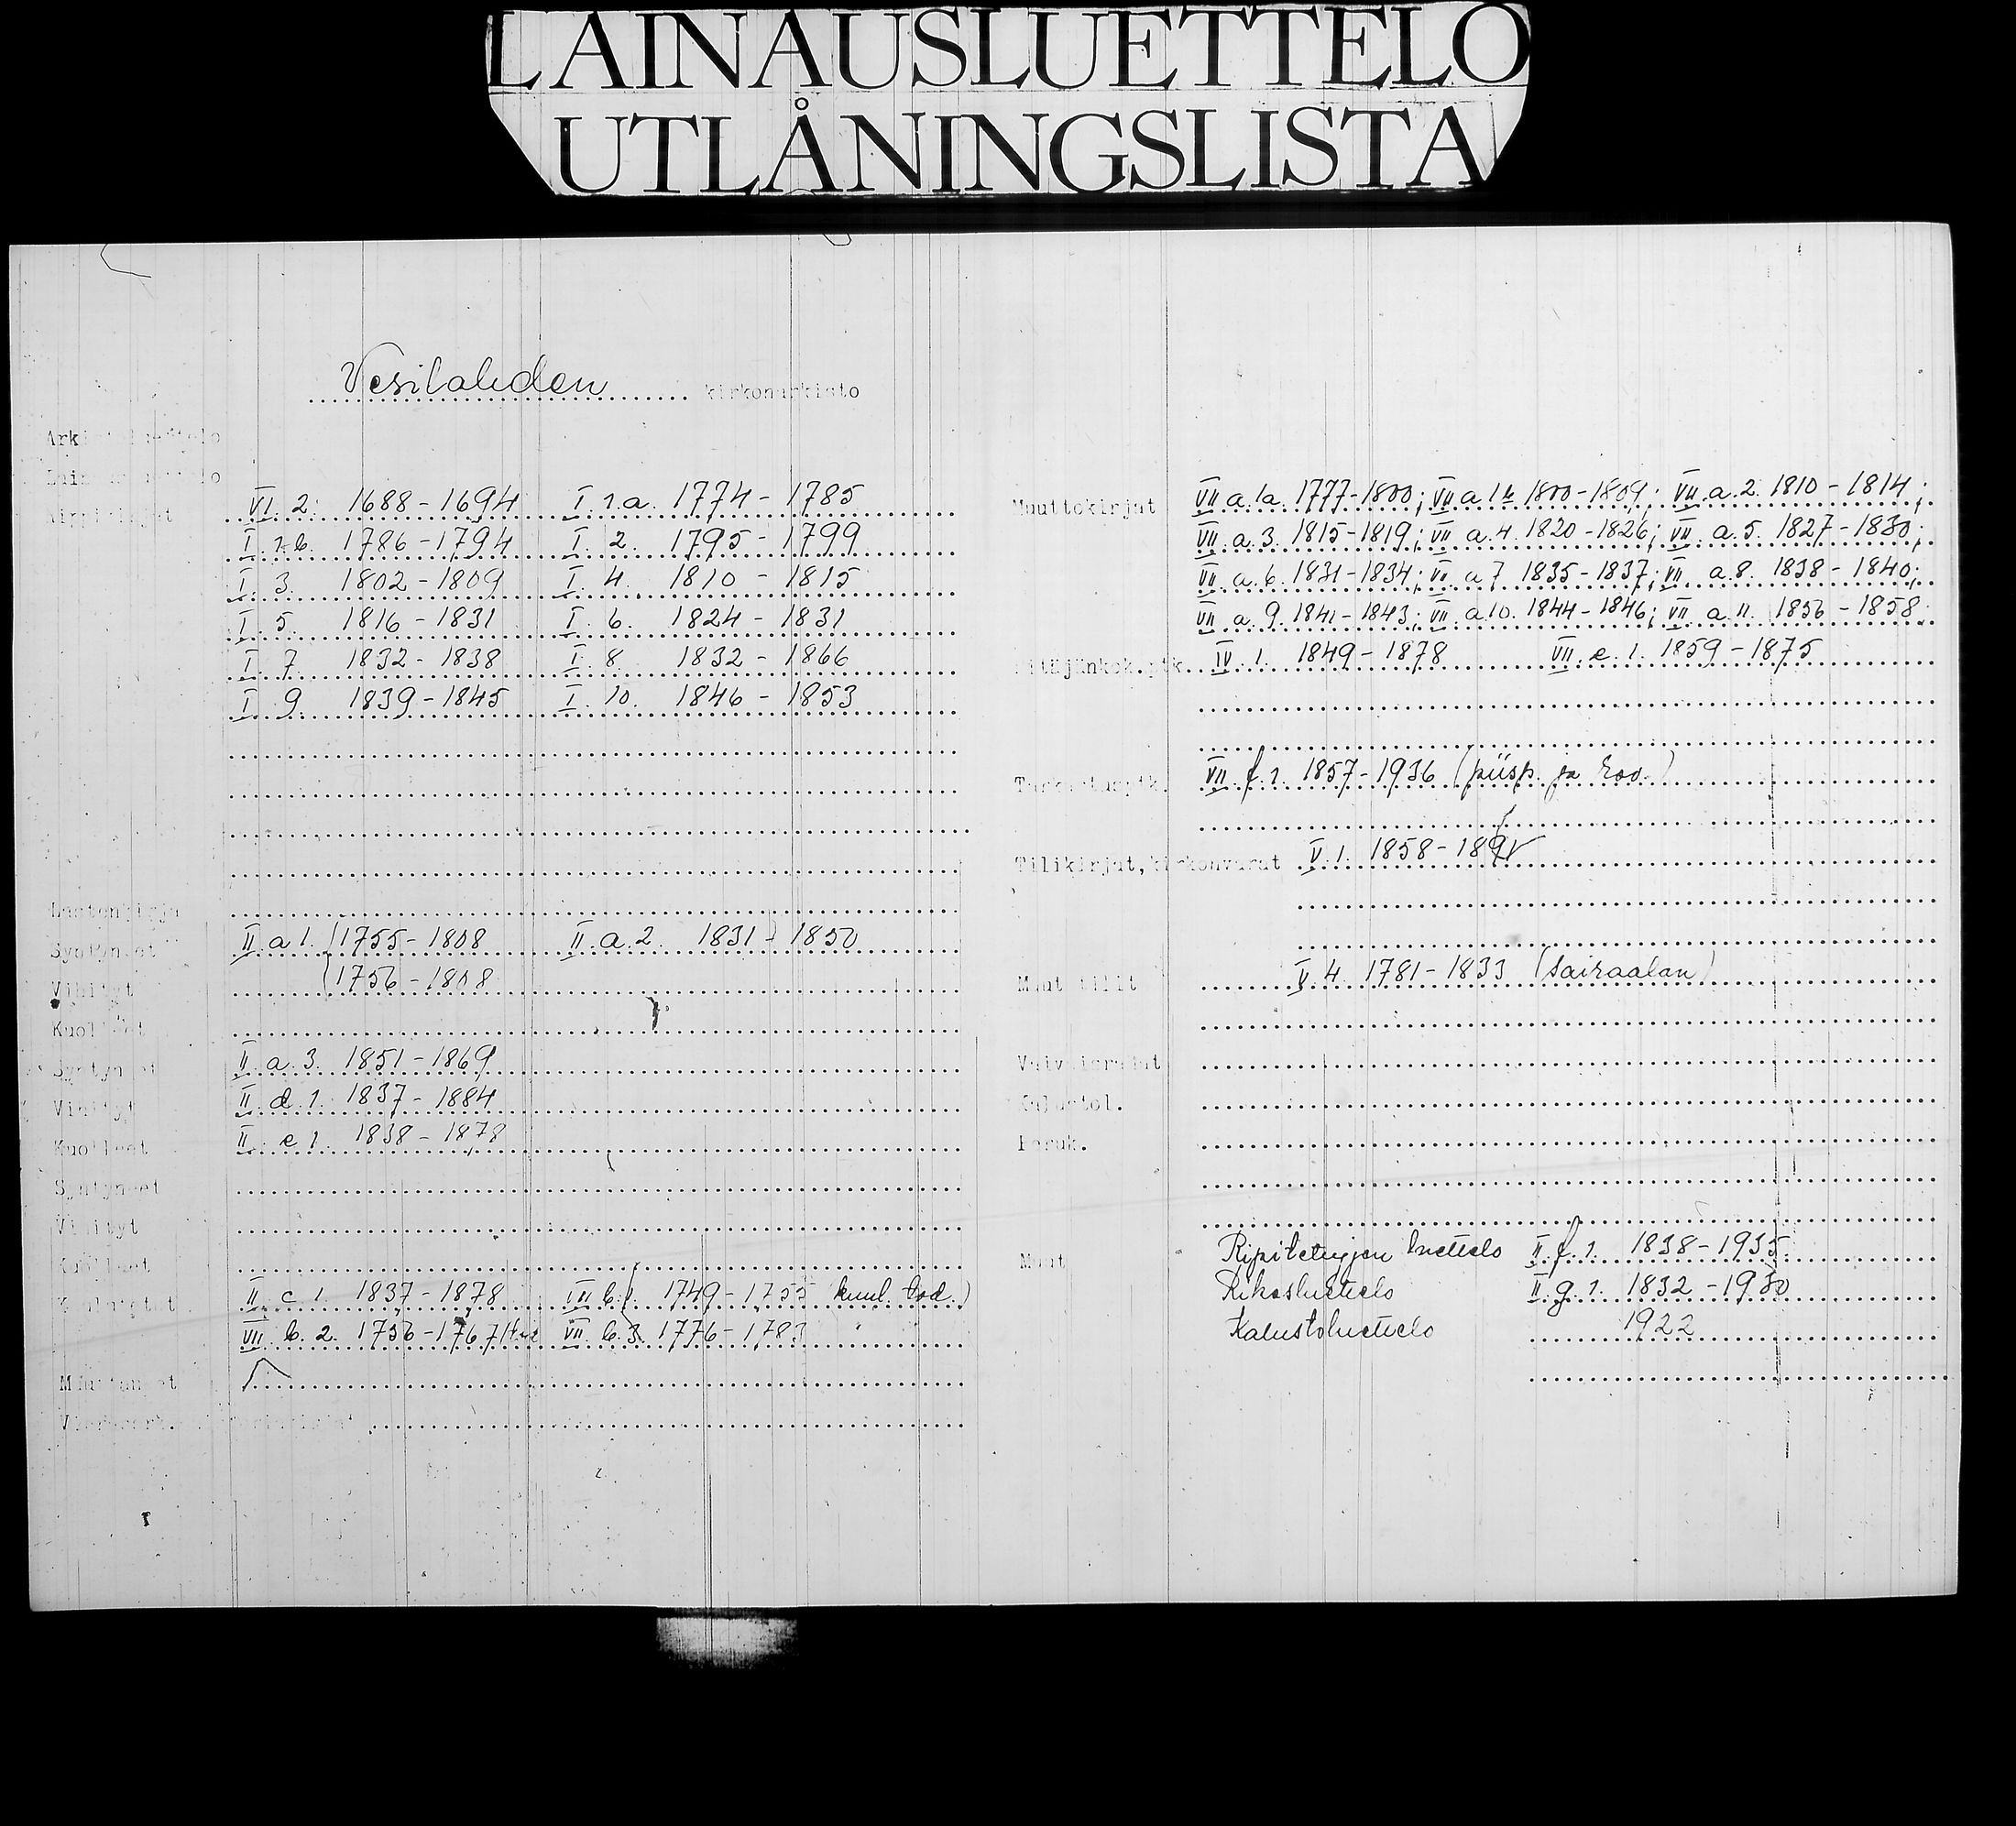 LAINAUSLUETTELO
UTLÅNINGSLISTA
Vesilahden kirkonarkisto
VI. 2. 1688-1694 I. 1.a. 1774-1785
I. 1.b. 1786-1794 I. 2. 1795-1799
I. 3. 1802-1809 I. 4. 1810-1815
I. 5. 1816-1831 I. 6. 1824-1831
I. 7 1832-1838 I. 8 1832-1866
I. 9. 1839-1845 I. 10. 1846-1853
Lastenkirja
Syntyneet II. a 1. (1755-1808 II. a. 2. 1831-1850
Vihityt (1756-1808
Kuolleet
Syntyneet II. a. 3. 1851-1869
Vihityt II. d. 1. 1837-1884
Kuolleet II. e 1. 1838-1878
Syntyneet
Vihityt
Kuolleet
Kuulutetut II. c 1. 1837-1878 VII b. 1. 1749-1755 kuul. tod.)
VII. b. 2. 1756-1767 VII. b. 3. 1776-1783
Muuttaneet
Muuttokirjat VII a. 1a. 1777-1800; VII a 1b 1800-1809; VII. a. 2. 1810-1814;
VII. a. 3. 1815-1819; VII a. 4. 1820-1826; VII. a. 5. 1827-1830;
VII. a. 6. 1831-1834; VII. a 7. 1835-1837; VII. a. 8. 1838-1840;
VII. a. 9. 1841-1843; VII. a 10. 1844-1846; VII. a. 11. 1856-1858.
Pitäjänkok.ptk. IV. 1. 1849-1878 VII. e. 1. 1859-1875
Tarkastusptk. VII. f. 1. 1857-1936 (piisp. ja rov.)
Tilikirjat, kirkonvarat V. 1. 1858-1891
Muut tilit V. 4. 1781-1833 (Sairaalan)
Vaivaisrahat
Kalustol.
Peruk.
Muut Ripiltetujjen luettelo II. f. 1. 1838-1935.
Rikosluettelo II. g. 1. 1832-1930
Kalustoluettelo 1922